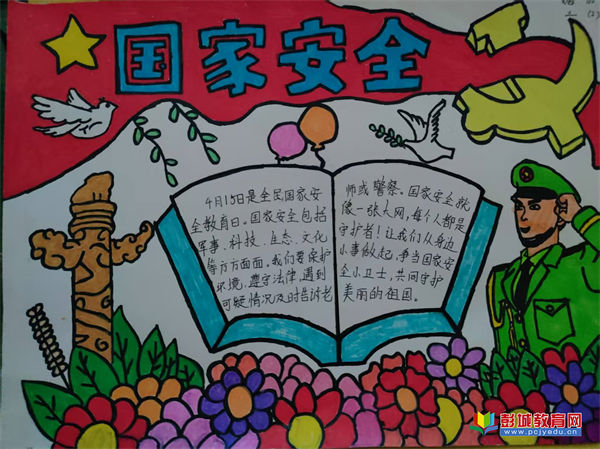 国家安全
4月15日是全民国家安
全教育日。国家安全包括
军事、科技、生态、文化
等方方面面。我们要保护
环境，遵守法律，遇到
可疑情况及时告诉老
师或警察。国家安全就
像一张大网，每个人都是
守护者！让我们从身边
小事做起，争当国家安
全小卫士，共同守护
美丽的祖国。
彭城教育网
www.pcjyedu.cn